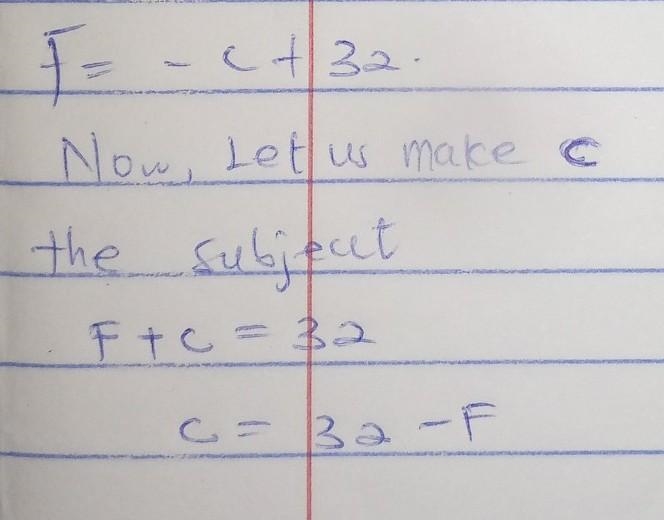 F = - c + 32.
Now, Let us make c
the subject
F + c = 32
c = 32 - F